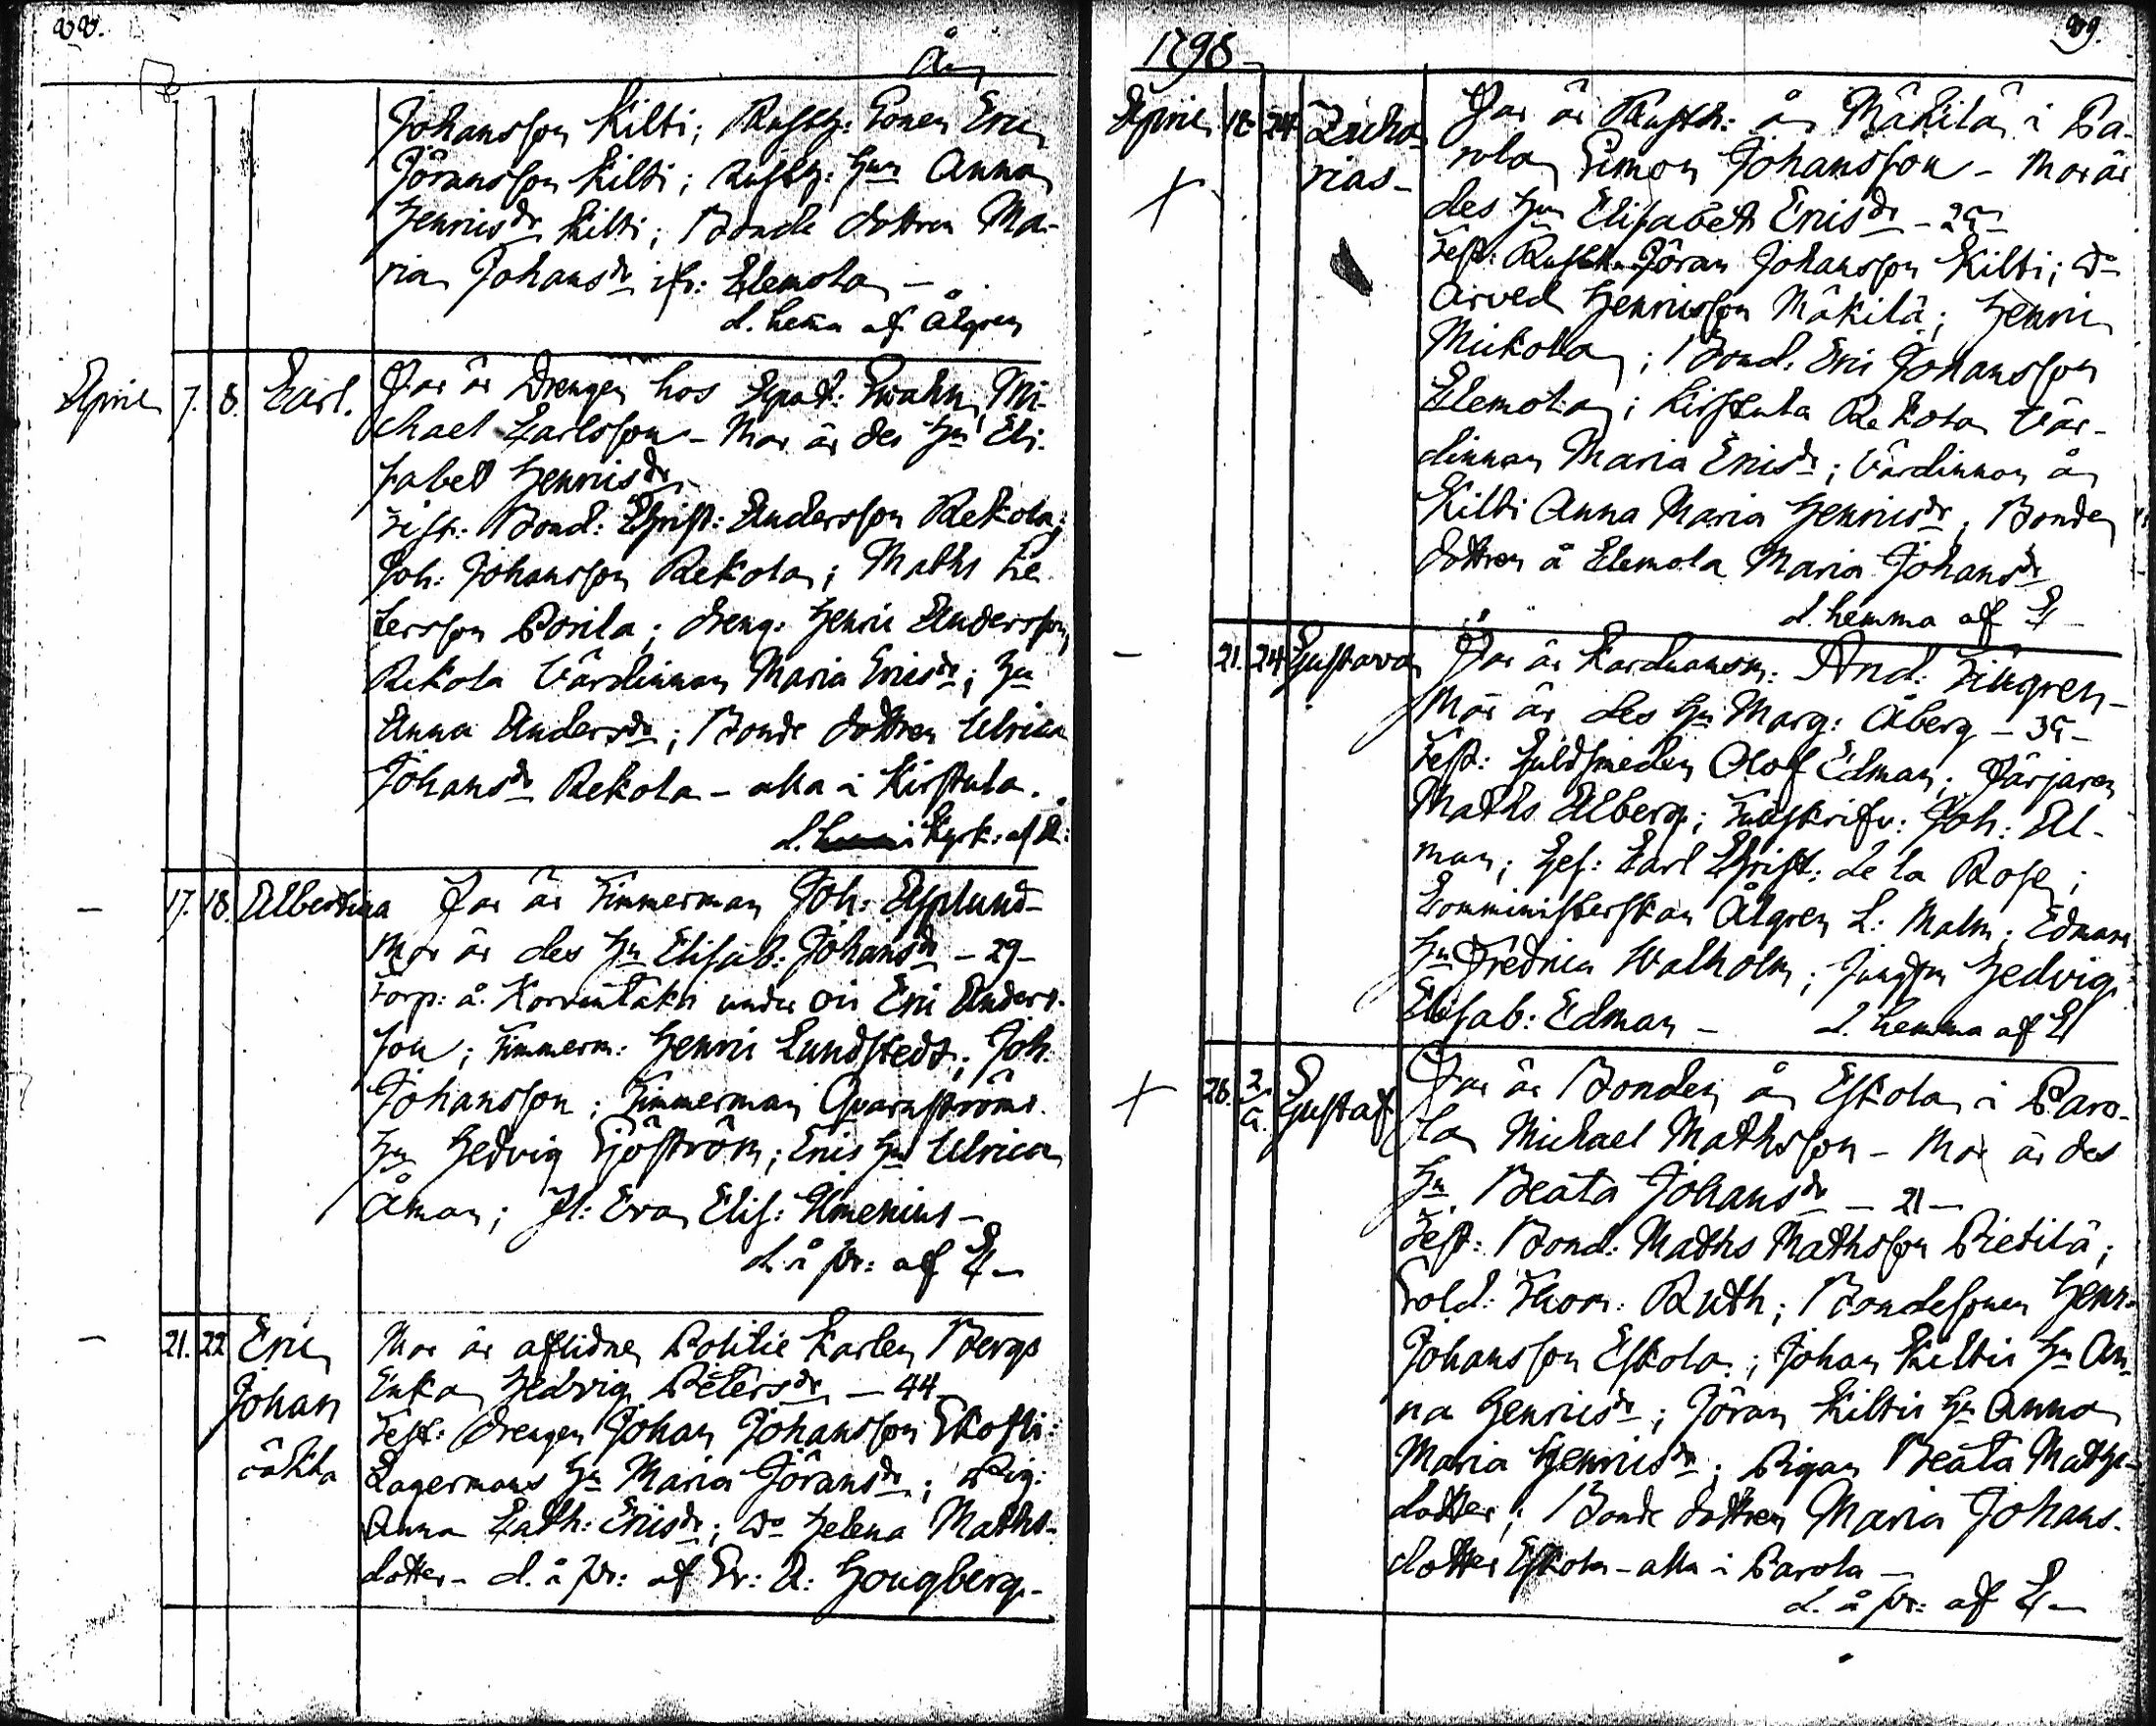 88.
År
Johansson Kilti; Rusth: Sonen Eric
Jöransson Kilti; Rusth: Hu Anna
Henricsdr Kilti; Bonde dottren Ma-
ria Johansdr ifr: Elemola -
d. hema af Ålgren
April 7. 8. Carl. Far är Drengen hos Mi-
chael Carlsson - Mor är des Hu Eli-
sabet Henricsdr
Test: Bond: Christ: Andersson Rekola;
Joh: Johansson Rekola; Maths Pe-
tersson Porila; dreng: Henric Andersson
Rekola Värdinnan Maria Ericsdr; Hu
Anna Andersdr; Bonde dottren Ulrica
Johansdr Rekola - alla i Kirstula.
d. i Kyrk: af Å:
- 17. 18. Albertina Far är Timmerman Joh: Asplund -
Mor är des Hu Elisab: Johansdr - 29 -
Torp: å under Eric Anders-
son; Timmerm: Henric Lundstedt; Joh:
Johansson; Timmerman Qvarnströms
Hu Hedvig Sjöström; Hu Ulrica
Åman; Jf: Eva Elis: Ilmenius -
d. å pr: af Å -
- 21. 22 Eric Mor är aflidne Politie Karlen Bergs
Johan Enka Hedvig Petersdr - 44 -
oäkta Test: Drengen Johan Johansson
Lagermans Hu Maria Jöransdr; Pig:
Anna Cath: Ericsdr; do Helena Maths-
dotter - d. å pr: af Hr: A: Hougberg -
1798 - 89.
April 18. 24. Zacha- Far är Rusth: å Mäkilä i Pa-
rias - rola Simon Johansson - Mor är
des Hu Elisabet Ericsdr
Test: Rusth: Jöran Johansson Kilti; do
Arved Henricsson Mäkilä; Henric
Mickola; Bond: Eric Johansson
Elemola; Kirstula Rekola Vär-
dinnan Maria Ericsdr; Värdinnan å
Kilti Anna Maria Henricsdr; Bonde
dottren å Elemola Maria Johansdr
d. hemma af Å -
- 21. 24 Gustava Far är Karduansm: And: Tingren -
Mor är des Hu Marg: Åberg - 35 -
Test: Guldsmeden Olof Edman; Färjaren
Maths Alberg; Joh: Al-
man; Ges: Carl Christ: de la Rose;
Comministerskan Ålgren L: Malm; Edmans
Hu Fredrica Walholm; Jungfru Hedvig
Elisab: Edman - d. hemma af Å
28. 2/5. Gustaf Far är Bonden å Eskola i Paro-
la Michael Mathsson - Mor är des
Hu Beata Johansdr - 21 -
Test: Bond: Maths Mathsson Pietilä;
Sold: Thom: Ruth; Bondesonen Henr:
Johansson Eskola; Johan Kiltis Hu An-
na Henricsdr; Jöran Kiltis Hu Anna
Maria Henricsdr; Pigan Beata Maths-
dotter; Bonde dottren Maria Johans-
dotter Eskola - alla i Parola -
d. å pr: af Å -